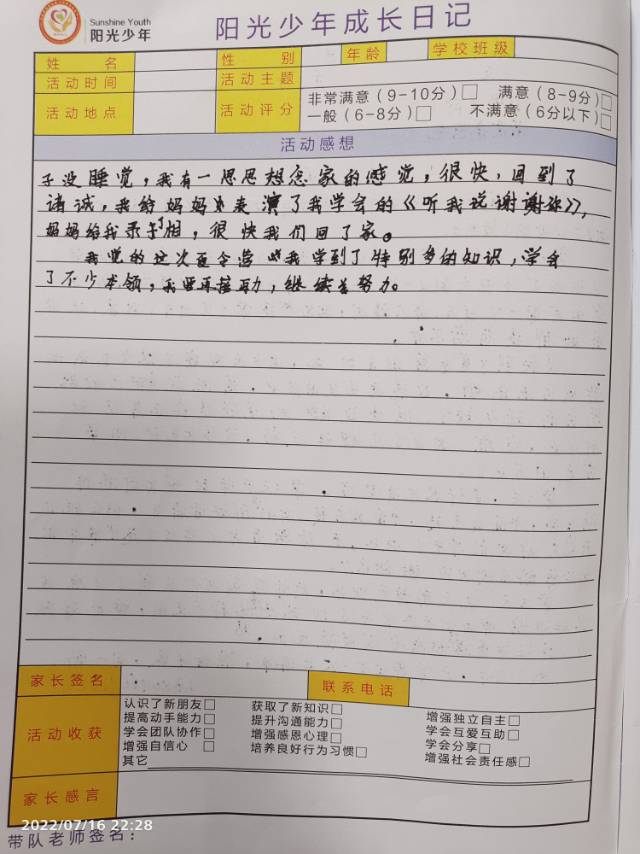 Sunshine Youth
阳光少年
阳光少年成长日记
姓名 性别 年龄 学校班级
活动时间 活动主题
活动地点 活动评分 非常满意（9-10分）□ 满意（8-9分）□
一般（6-8分）□ 不满意（6分以下）□
活动感想
子没睡觉，我有一思思想念家的感觉，很快，回到了
诸诚，我给妈妈表演了我学会的《听我说谢谢你》，
妈妈给我照相，很快我们回了家。
我觉的这次夏令营我学到了特别多的知识，学会
了不少本领，我要再接再力，继续努力。
家长签名 联系电话
活动收获
认识了新朋友□ 获取了新知识□ 增强独立自主□
提高动手能力□ 提升沟通能力□ 学会互爱互助□
学会团队协作□ 增强感恩心理□ 学会分享□
增强自信心□ 培养良好行为习惯□ 增强社会责任感□
其它
家长感言
2022/07/16 22:28
带队老师签名：